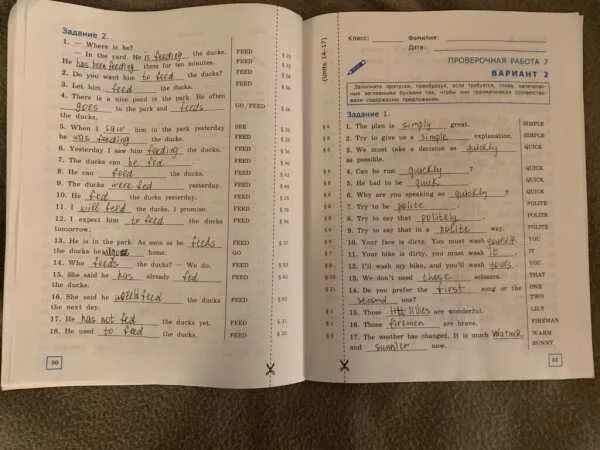 Задание 2.
1. — Where is he?
— In the yard. He is feeding the ducks. FEED
He has been feeding them for ten minutes. FEED
2. Do you want him to feed the ducks? FEED
3. Let him feed the ducks. FEED
4. There is a nice pond in the park. He often
goes to the park and feeds GO / FEED
the ducks.
5. When I saw him in the park yesterday SEE
he was feeding the ducks. FEED
6. Yesterday I saw him feeding the ducks. FEED
7. The ducks can be fed FEED
8. He can feed the ducks. FEED
9. The ducks were fed yesterday. FEED
10. He fed the ducks yesterday. FEED
11. I will feed the ducks, I promise. FEED
12. I expect him to feed the ducks FEED
tomorrow.
13. He is in the park. As soon as he feeds FEED
the ducks he goes home. GO
14. Who feeds the ducks? — We do. FEED
15. She said he has already fed FEED
the ducks.
16. She said he would feed the ducks FEED
the next day.
17. He has not fed the ducks yet. FEED
18. He used to feed the ducks. FEED
(Units 14–17)
Класс: Фамилия:
Дата:
ПРОВЕРОЧНАЯ РАБОТА 7
ВАРИАНТ 2
Заполните пропуски, преобразуя, если требуется, слова, напечатанные
заглавными буквами так, чтобы они грамматически соответствовали
содержанию предложения.
Задание 1.
1. The plan is simply great. SIMPLE
2. Try to give us a simple explanation. SIMPLE
3. We must take a decision as quickly QUICK
as possible.
4. Can he run quickly ? QUICK
5. He had to be quick QUICK
6. Why are you speaking so quickly ? QUICK
7. Try to be polite POLITE
8. Try to say that politely. POLITE
9. Try to say that in a polite way. POLITE
10. Your face is dirty. You must wash yourself YOU
11. Your bike is dirty, you must wash it. IT
12. I'll wash my bike, and you'll wash yours YOU
13. We don't need those scissors. THAT
14. Do you prefer the first song or the ONE
second one? TWO
15. Those lilies are wonderful. LILY
16. Those firemen are brave. FIREMAN
17. The weather has changed. It is much WARM
and sunnier now. SUNNY